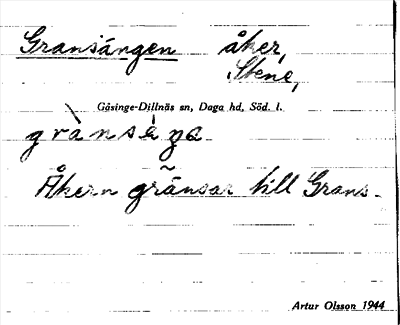 Gransängen åker,
Stene,
Gåsinge-Dillnäs sn, Daga hd, Söd. l.
Åkern gränsar till Grans-
Artur Olsson 1944